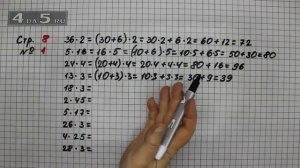 4DA5.RU
Стр. 8
№ 1
36·2 = (30+6)·2 = 30·2+6·2 = 60+12 = 72
5·16 = 16·5 = (10+6)·5 = 10·5+6·5 = 50+30=80
24·4 = (20+4)·4 = 20·4+4·4 = 80+16 = 96
13·3 = (10+3)·3 = 10·3+3·3= 30+9=39
18·3 =
2·45 =
5·17 =
26·3 =
4·25 =
28·3 =